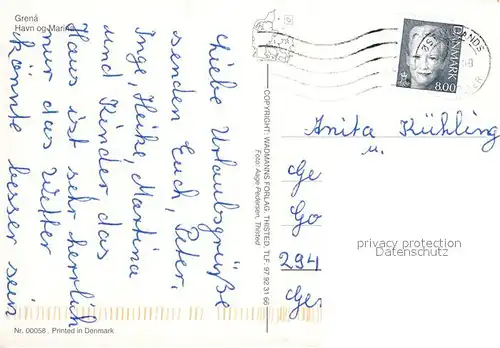 Grenå
Havn og Marina
Liebe Urlaubsgrüße
senden Euch, Peter,
Inge, Heike, Martina
und Kinder das
Haus ist sehr herrlich
nur das Wetter
könnte besser sein
Nr. 00058 Printed in Denmark
COPYRIGHT: WADMANNS FORLAG, THISTED. TLF. 97 92 31 66
Foto: Aage Pedersen, Thisted
DANMARK
8.00
Anita Kühling
u.
Ge
Go
294
Ger
privacy protection
Datenschutz